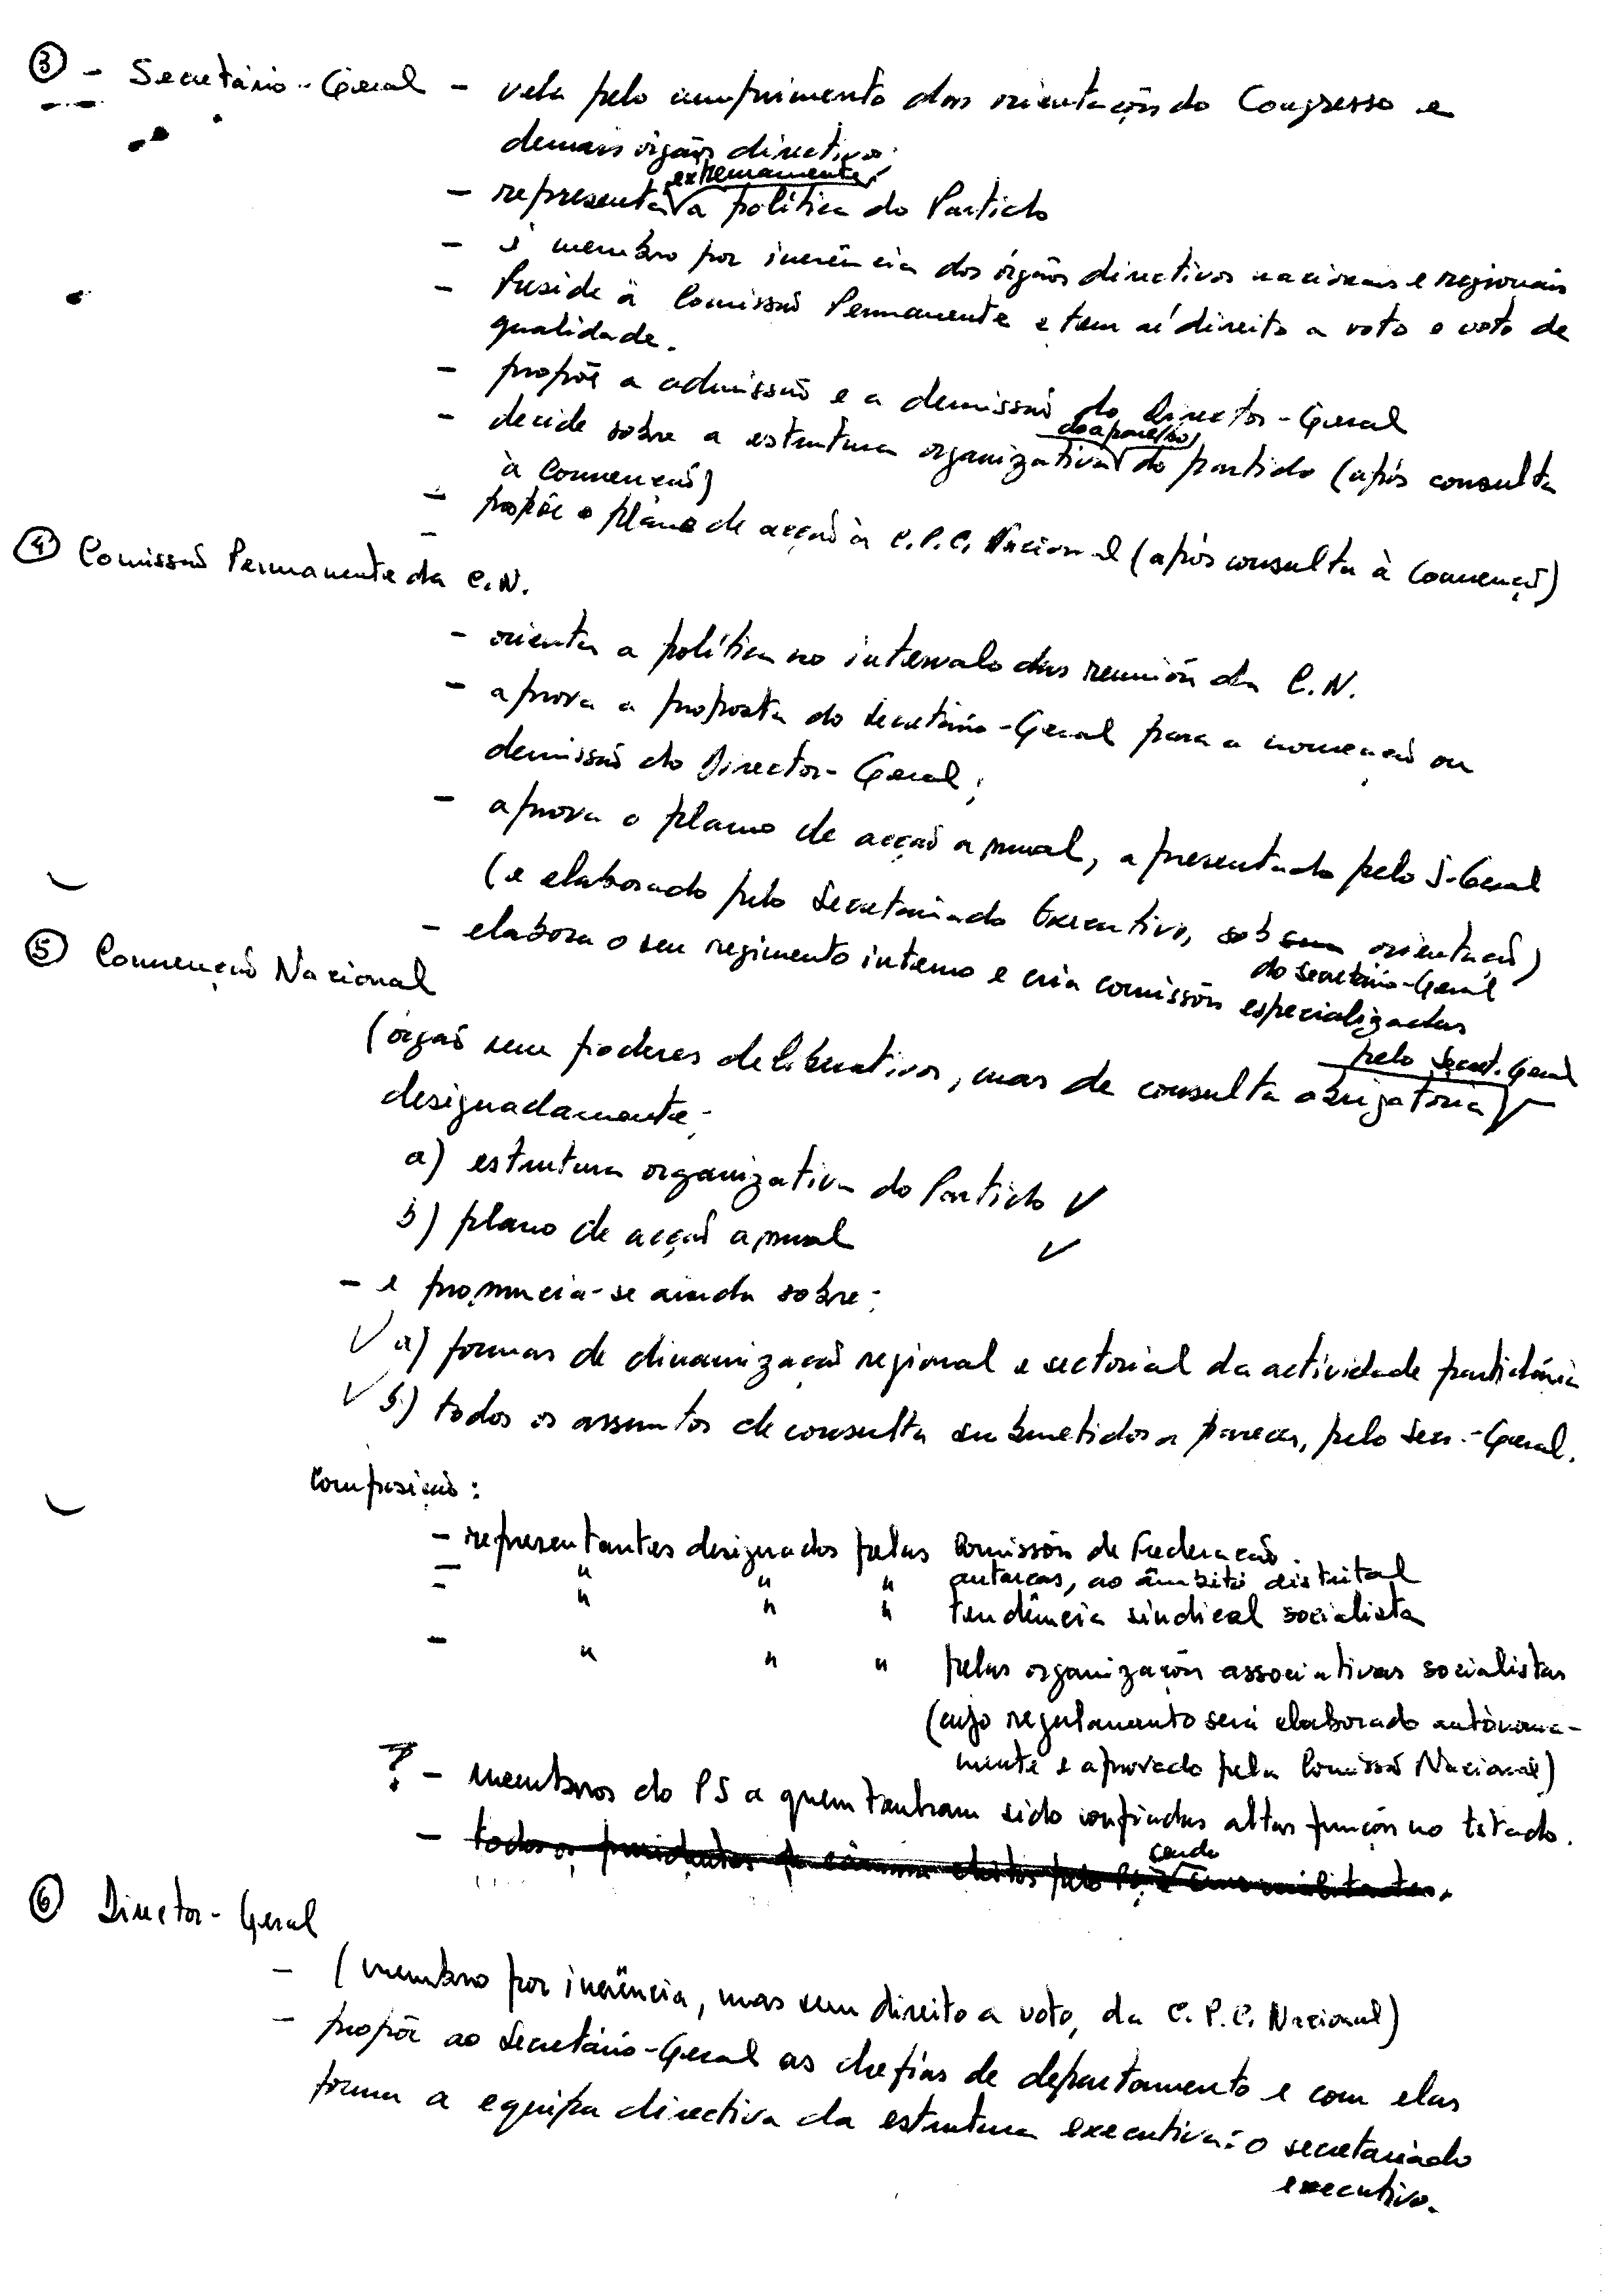 ③ - Secretário-Geral - vela pelo cumprimento das orientações do Congresso e
demais órgãos directivos;
externamente
- representa a política do Partido
- é membro por inerência dos órgãos directivos nacionais e regionais
- Preside à Comissão Permanente e tem aí direito a voto e voto de
qualidade.
- propõe a admissão e a demissão do Director-Geral
do aparelho
- decide sobre a estrutura organizativa do partido (após consulta
à Convenção)
- propõe o plano de acção à C.P.C. Nacional (após consulta à Convenção)
-
④ Comissão Permanente da C.N.
- orienta a política no intervalo das reuniões da C.N.
- aprova a proposta do Secretário-Geral para a nomeação ou
demissão do Director-Geral;
- aprova o plano de acção anual, apresentado pelo S-Geral
(e elaborado pelo Secretariado Executivo, sob sua orientação)
do Secretário-Geral
- elabora o seu regimento interno e cria comissões especializadas
⑤ Convenção Nacional
pelo Secret. Geral
(órgão sem poderes deliberativos, mas de consulta obrigatória)
designadamente:
a) estrutura organizativa do Partido ✓
b) plano de acção anual ✓
- e pronuncia-se ainda sobre:
✓ a) formas de dinamização regional e sectorial da actividade partidária
✓ b) todos os assuntos de consulta submetidos a parecer, pelo Sec.-Geral.
Composição:
- representantes designados pelas Comissões de Federação.
- " " " autarcas, ao âmbito distrital
- " " " tendência sindical socialista
- " " " pelas organizações associativas socialistas
(cujo regulamento será elaborado autónoma-
mente e aprovado pela Comissão Nacional)
? - membros do PS a quem tenham sido confiadas altas funções no Estado.
sendo
- todos os presidentes de câmara eleitos pelo PS, e seus militantes.
⑥ Director-Geral
- (membro por inerência, mas sem direito a voto, da C.P.C. Nacional)
- propõe ao Secretário-Geral as chefias de departamento e com elas
forma a equipa directiva da estrutura executiva: o secretariado
executivo.